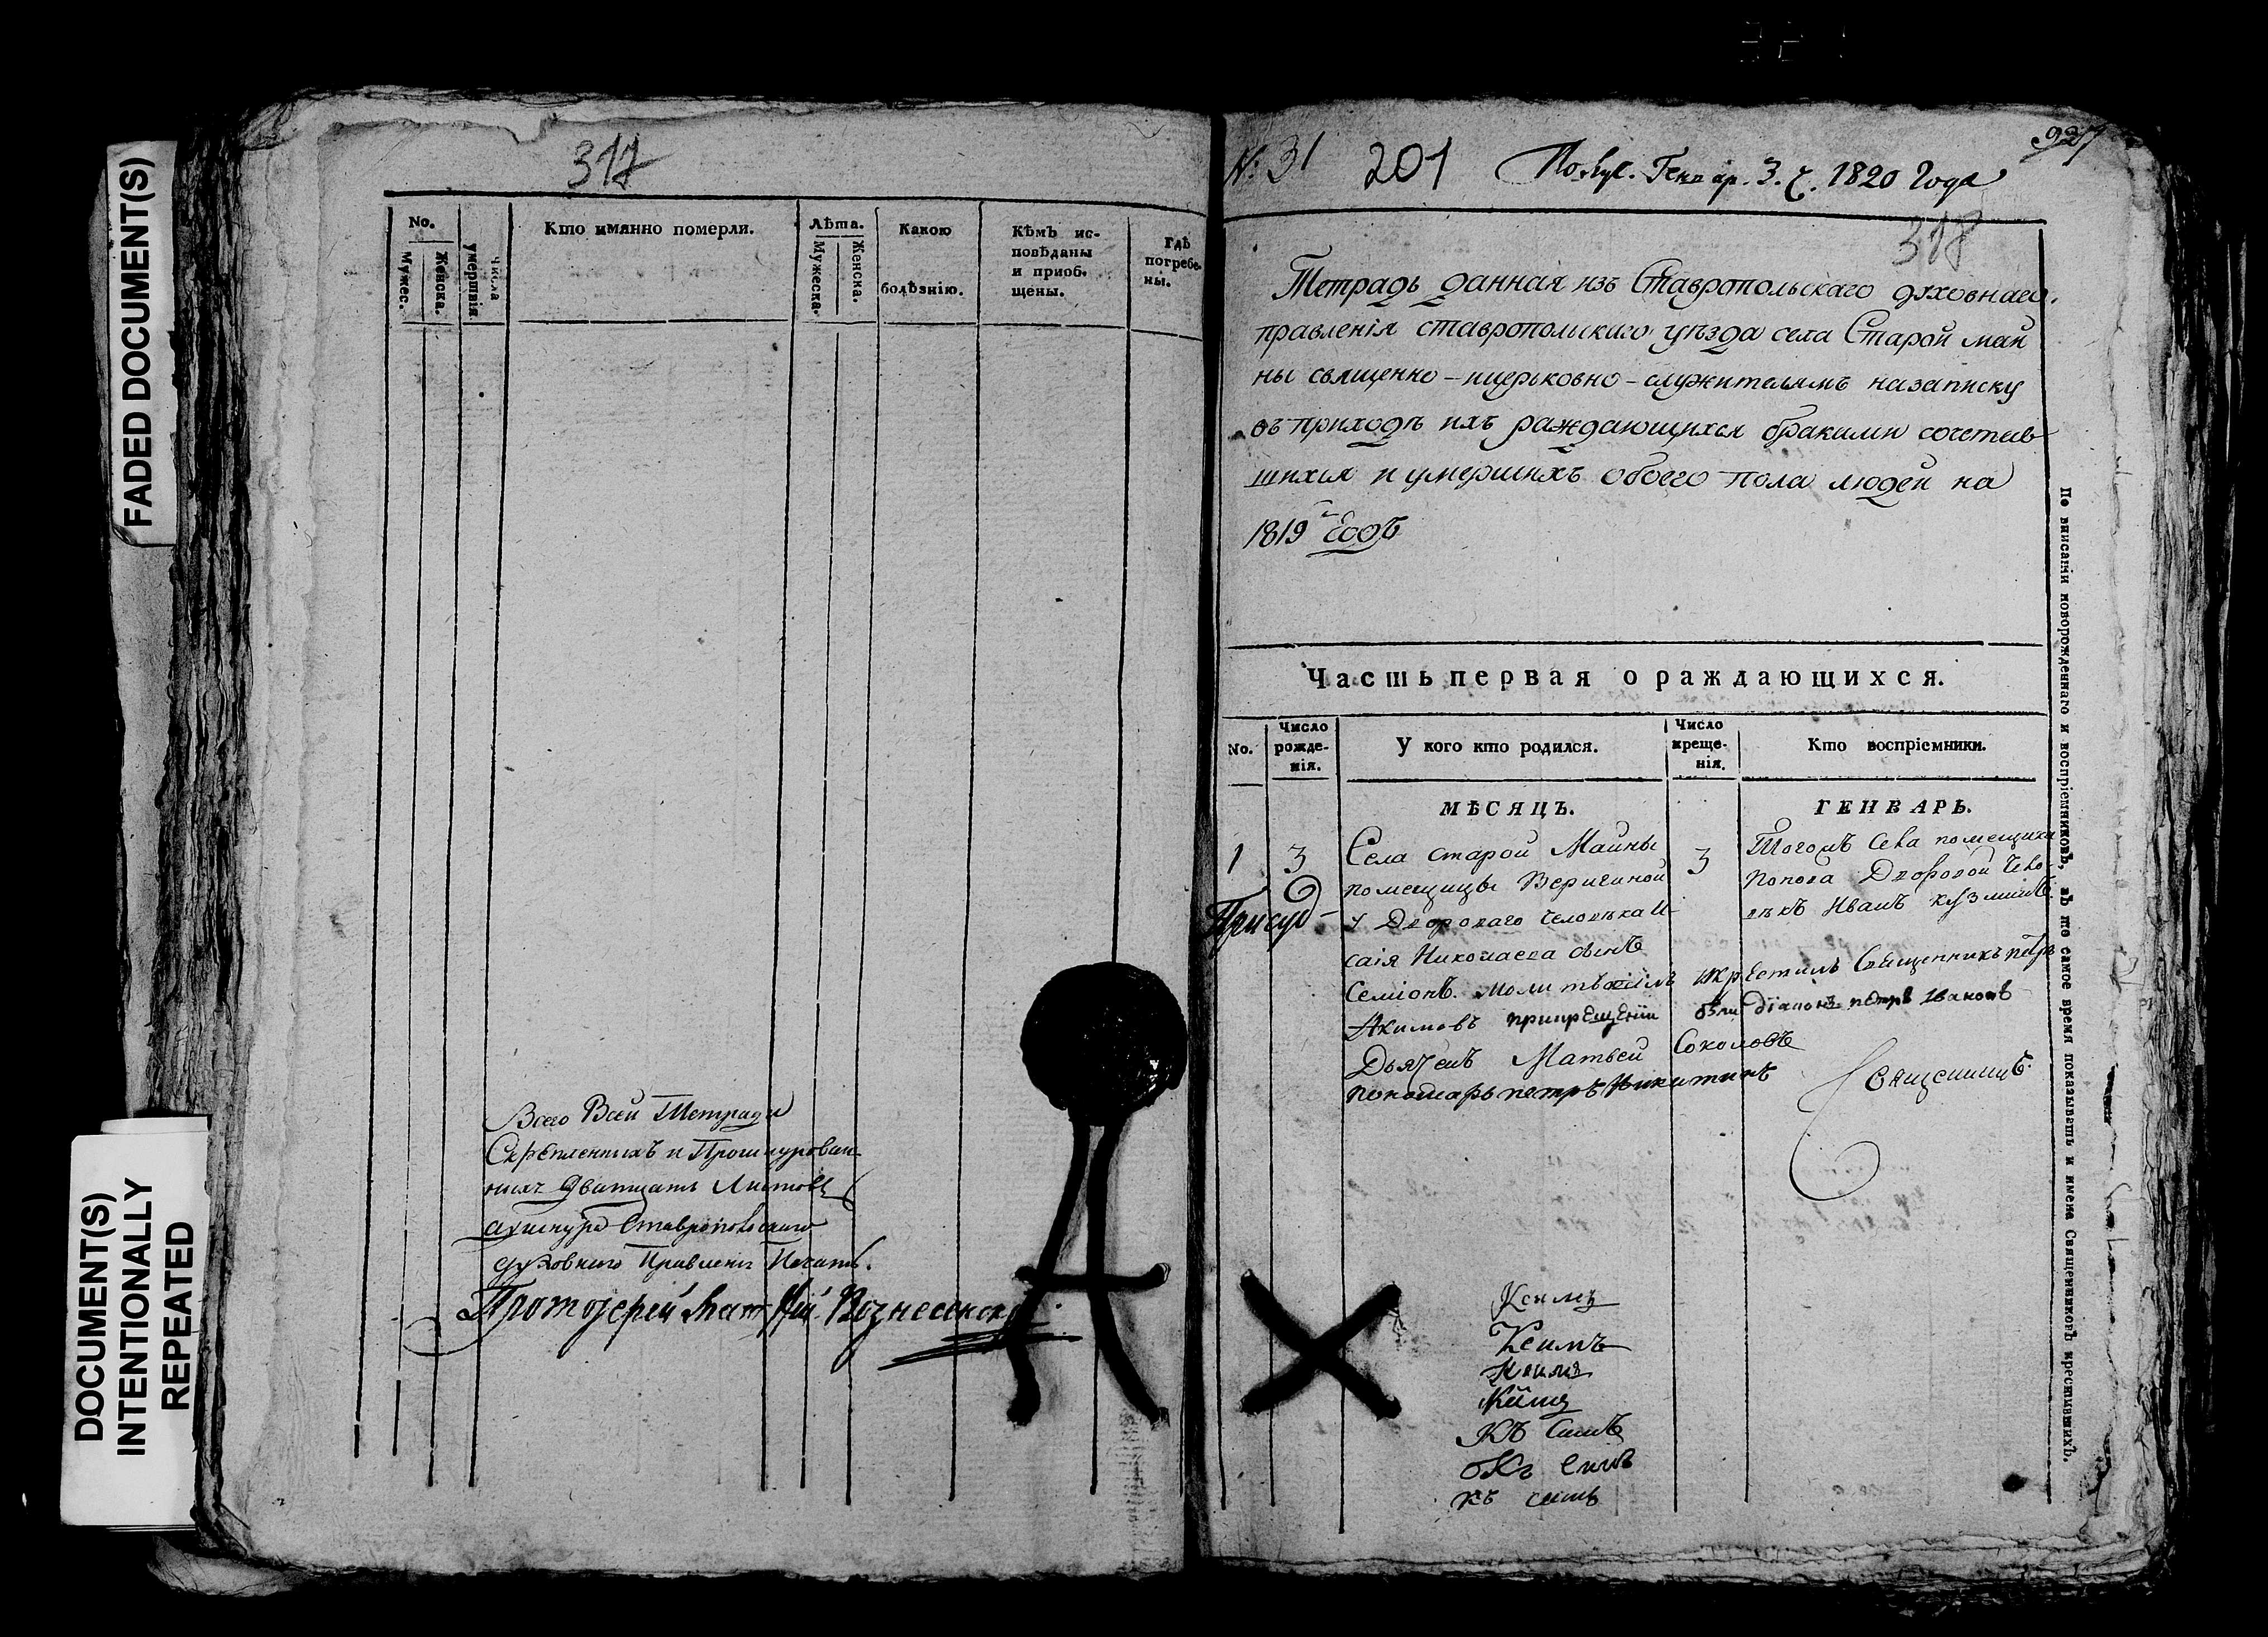 FADED DOCUMENT(S)
DOCUMENT(S)
INTENTIONALLY
REPEATED
317
No.
Мужес.
Женска.
Числа
умершвія
Кто имянно померли.
Лѣта.
Мужеска.
Женска.
Какою
болѣзнію.
Кѣмъ ис-
повѣданы
и приоб-
щены.
Гдѣ
погребе-
ны.
Всего Всей Тетради
Скрѣпленныхъ и Прошнурован-
ныхъ дватцать Листовъ
ахшнура Ставропольскаго
духовнаго Правленія Печать.
Протоіерей Матфѣй Вознесенск
№ 31 201 Получ. Генвар. 3. ч. 1820 Года
927
318
Тетрадь данная изъ Ставропольскаго духовнаго
правленія ставропольскаго уѣзда села Старой май
ны священно-ицерьковно-служителямъ назаписку
въ приходѣ ихъ раждающихся браками сочетав
шихся и умершихъ обоего пола людей на
1819й годъ
Часть первая о раждающихся.
No.
Число
рожде-
нія.
У кого кто родился.
Число
креще-
нія.
Кто воспріемники.
МѢСЯЦЪ. ГЕНВАРЬ.
1 3 Села старой Майны
помещицы Веригиной
у Дворового человѣка И-
саія Николаева сынъ
Семіонъ. молитвовалъ икрестилъ Священникъ петръ
Акимовъ прикрещеніи были діаконъ петръ Ивановъ
Дьячекъ Матвей Соколовъ
пономарь петръ Никитинъ
3 Тогожъ села помещика
попова Дворовой чело-
вѣкъ Иванъ Кузминъ
Присуд-
Священникъ
Ксимъ
Ксимъ
Ксимъ
Къ симъ
Къ симъ
къ симъ
По вписаніи новорожденнаго и воспріемниковъ, въ то самое время показывать и имена Священниковъ крестившихъ.